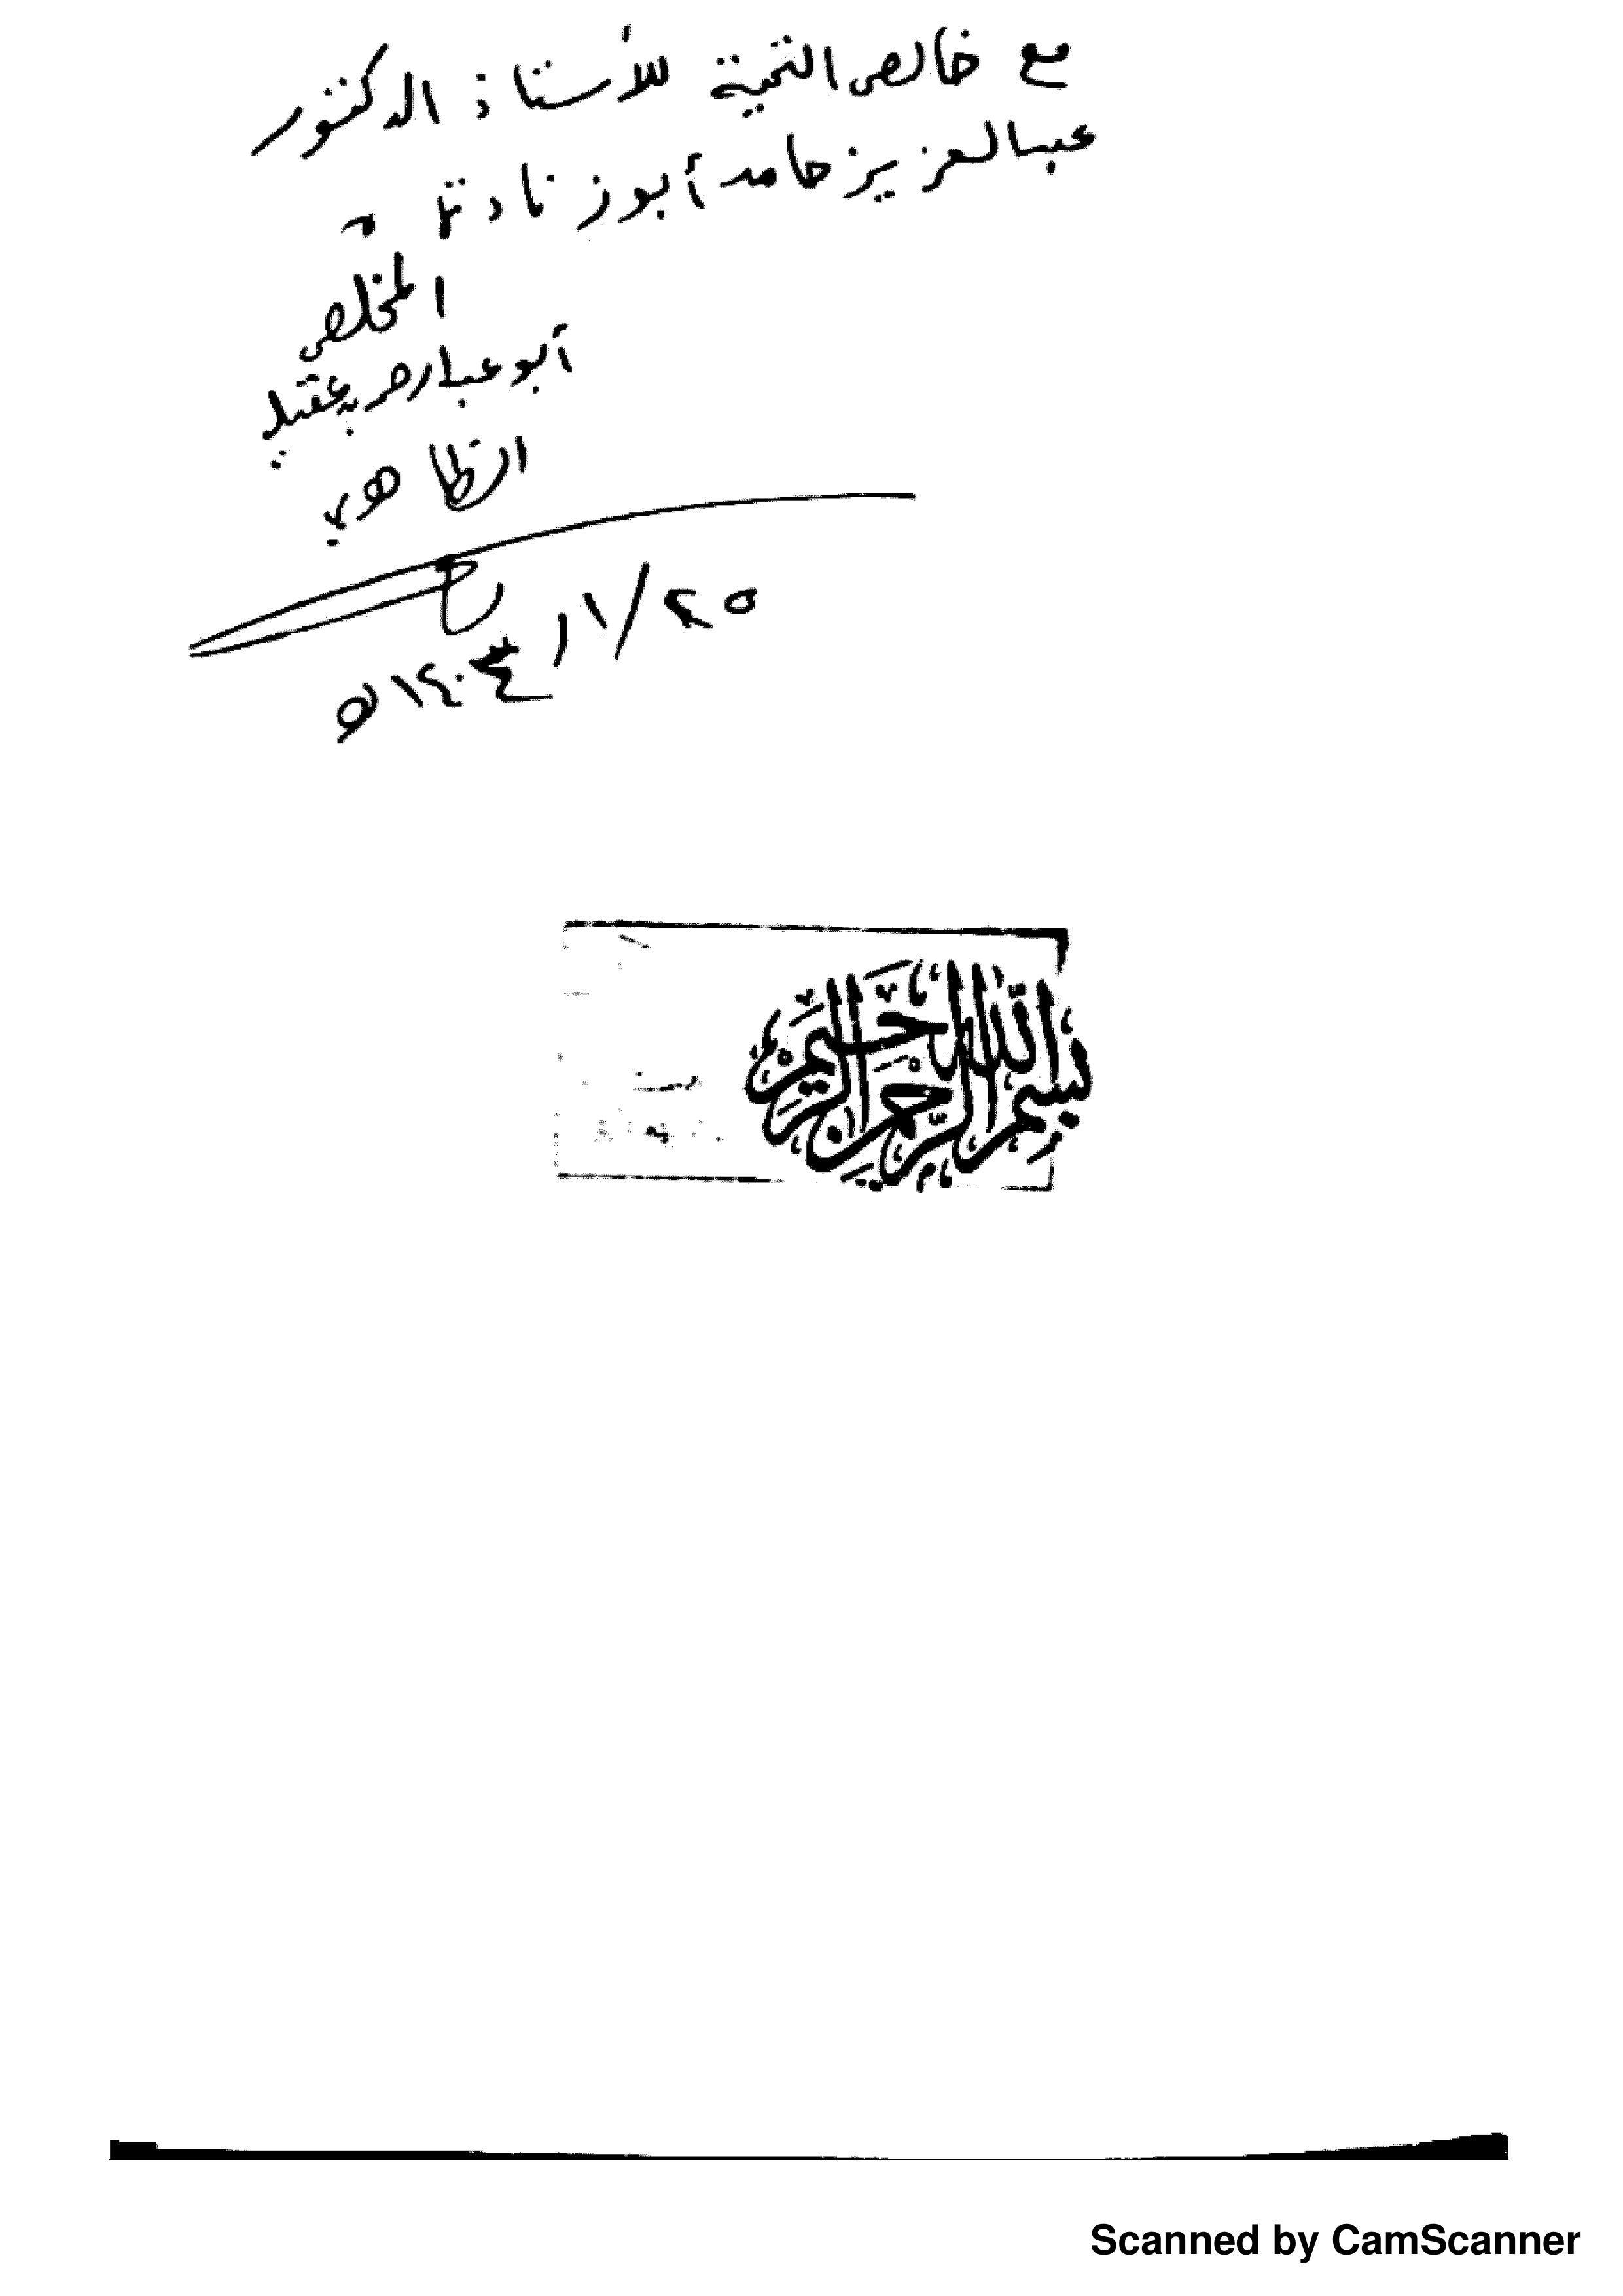 مع خالص التحية للأستاذ الدكتور
عبدالعزيز حامد أبوزنادة
المخلص
أبو عبدالرحمن بن عقيل
الظاهري
٢٥/١١/١٤٠٤هـ
بسم الله الرحمن الرحيم
Scanned by CamScanner